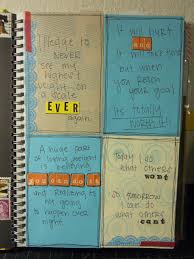 I pledge to
NEVER
see my
highest
weight on
a scale
EVER
again.
It will hurt
and
it will take
but when
you reach
your goal
It's totally
worth it!
A huge part
of losing weight
is believing
you can do it
and realizing it's
not going
to happen over
night
Today do
what others
want
So tomorrow
can do
what others
cant